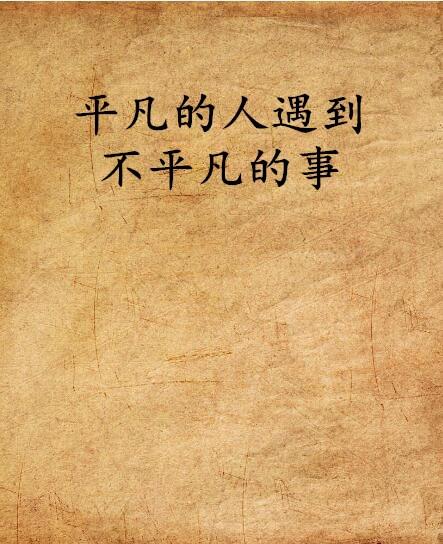 平凡的人遇到
不平凡的事